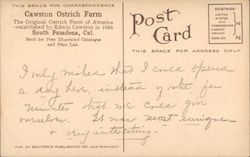 THIS SPACE FOR CORRESPONDENCE
Cawston Ostrich Farm
The Original Ostrich Farm of America
—established by Edwin Cawston in 1886
South Pasadena, Cal.
Send for Free Illustrated Catalogue
and Price List.
Post
Card
THIS SPACE FOR ADDRESS ONLY
I only wished that I could spend
a day here, instead of the few
minutes that we could give
ourselves. It was most unique
+ very interesting.
PUB. BY SOUVENIR PUBLISHING CO. SAN FRANCISCO